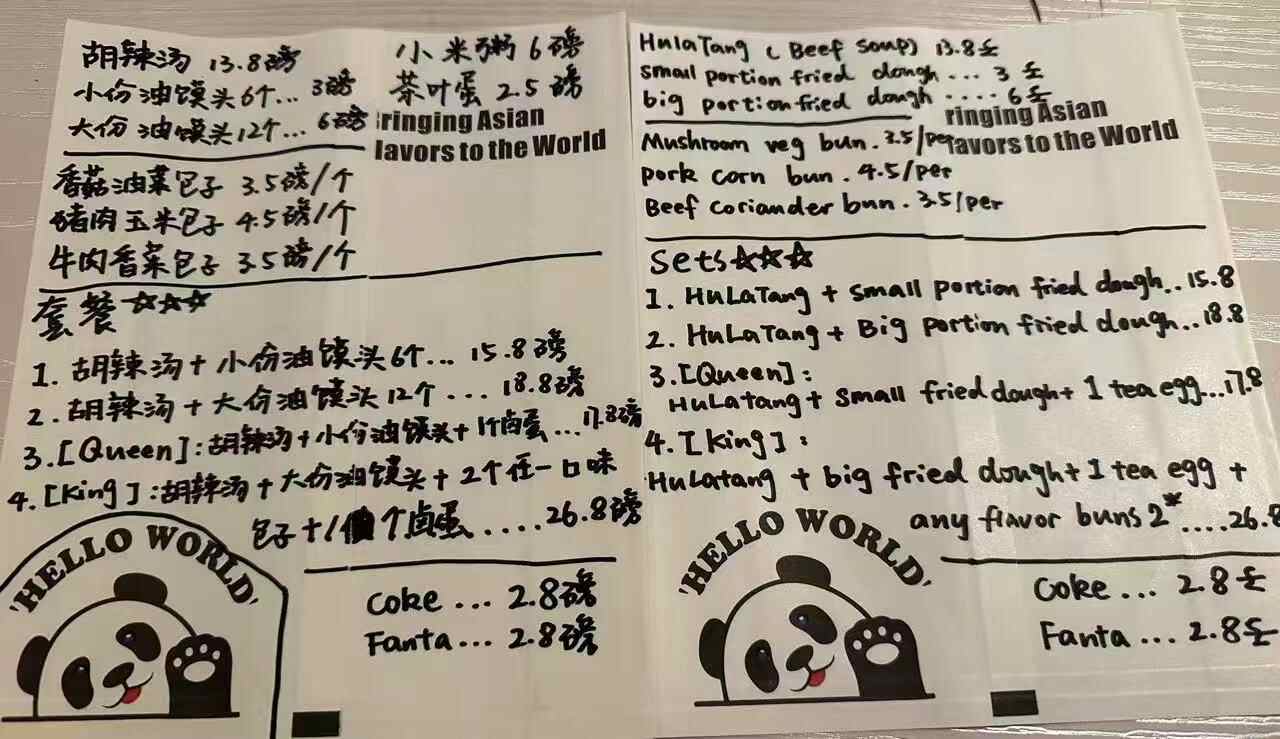 胡辣汤 13.8磅
小份油馍头6个... 3磅
大份油馍头12个... 6磅
小米粥 6磅
茶叶蛋 2.5磅
ringing Asian
lavors to the World
香菇油菜包子 3.5磅/个
猪肉玉米包子 4.5磅/个
牛肉香菜包子 3.5磅/个
套餐☆☆☆
1. 胡辣汤+小份油馍头6个... 15.8磅
2. 胡辣汤+大份油馍头12个... 18.8磅
3. [Queen]:胡辣汤+小份油馍头+1个卤蛋...17.8磅
4. [King]:胡辣汤+大份油馍头+2个任一口味
包子+1个卤蛋....26.8磅
'HELLO WORLD'
Coke ... 2.8磅
Fanta ... 2.8磅
HulaTang (Beef Soup) 13.8£
small portion fried dough ... 3 £
big portion fried dough .... 6£
ringing Asian
avors to the World
Mushroom veg bun. 3.5/per
pork corn bun. 4.5/per
Beef coriander bun. 3.5/per
Sets☆☆☆
1. HuLaTang + small portion fried dough..15.8
2. HuLaTang + Big portion fried dough..18.8
3.[Queen]:
HuLatang + small fried dough + 1 tea egg...17.8
4. [king]:
HuLatang + big fried dough + 1 tea egg +
any flavor buns 2*....26.8
'HELLO WORLD'
Coke ... 2.8£
Fanta ... 2.8£